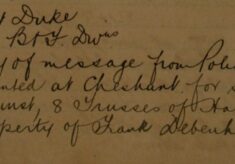 t Duke
y of message from Poli
nted at Cheshunt, for s
unst, 8 Trusses of Ha
perty of Frank Debenh